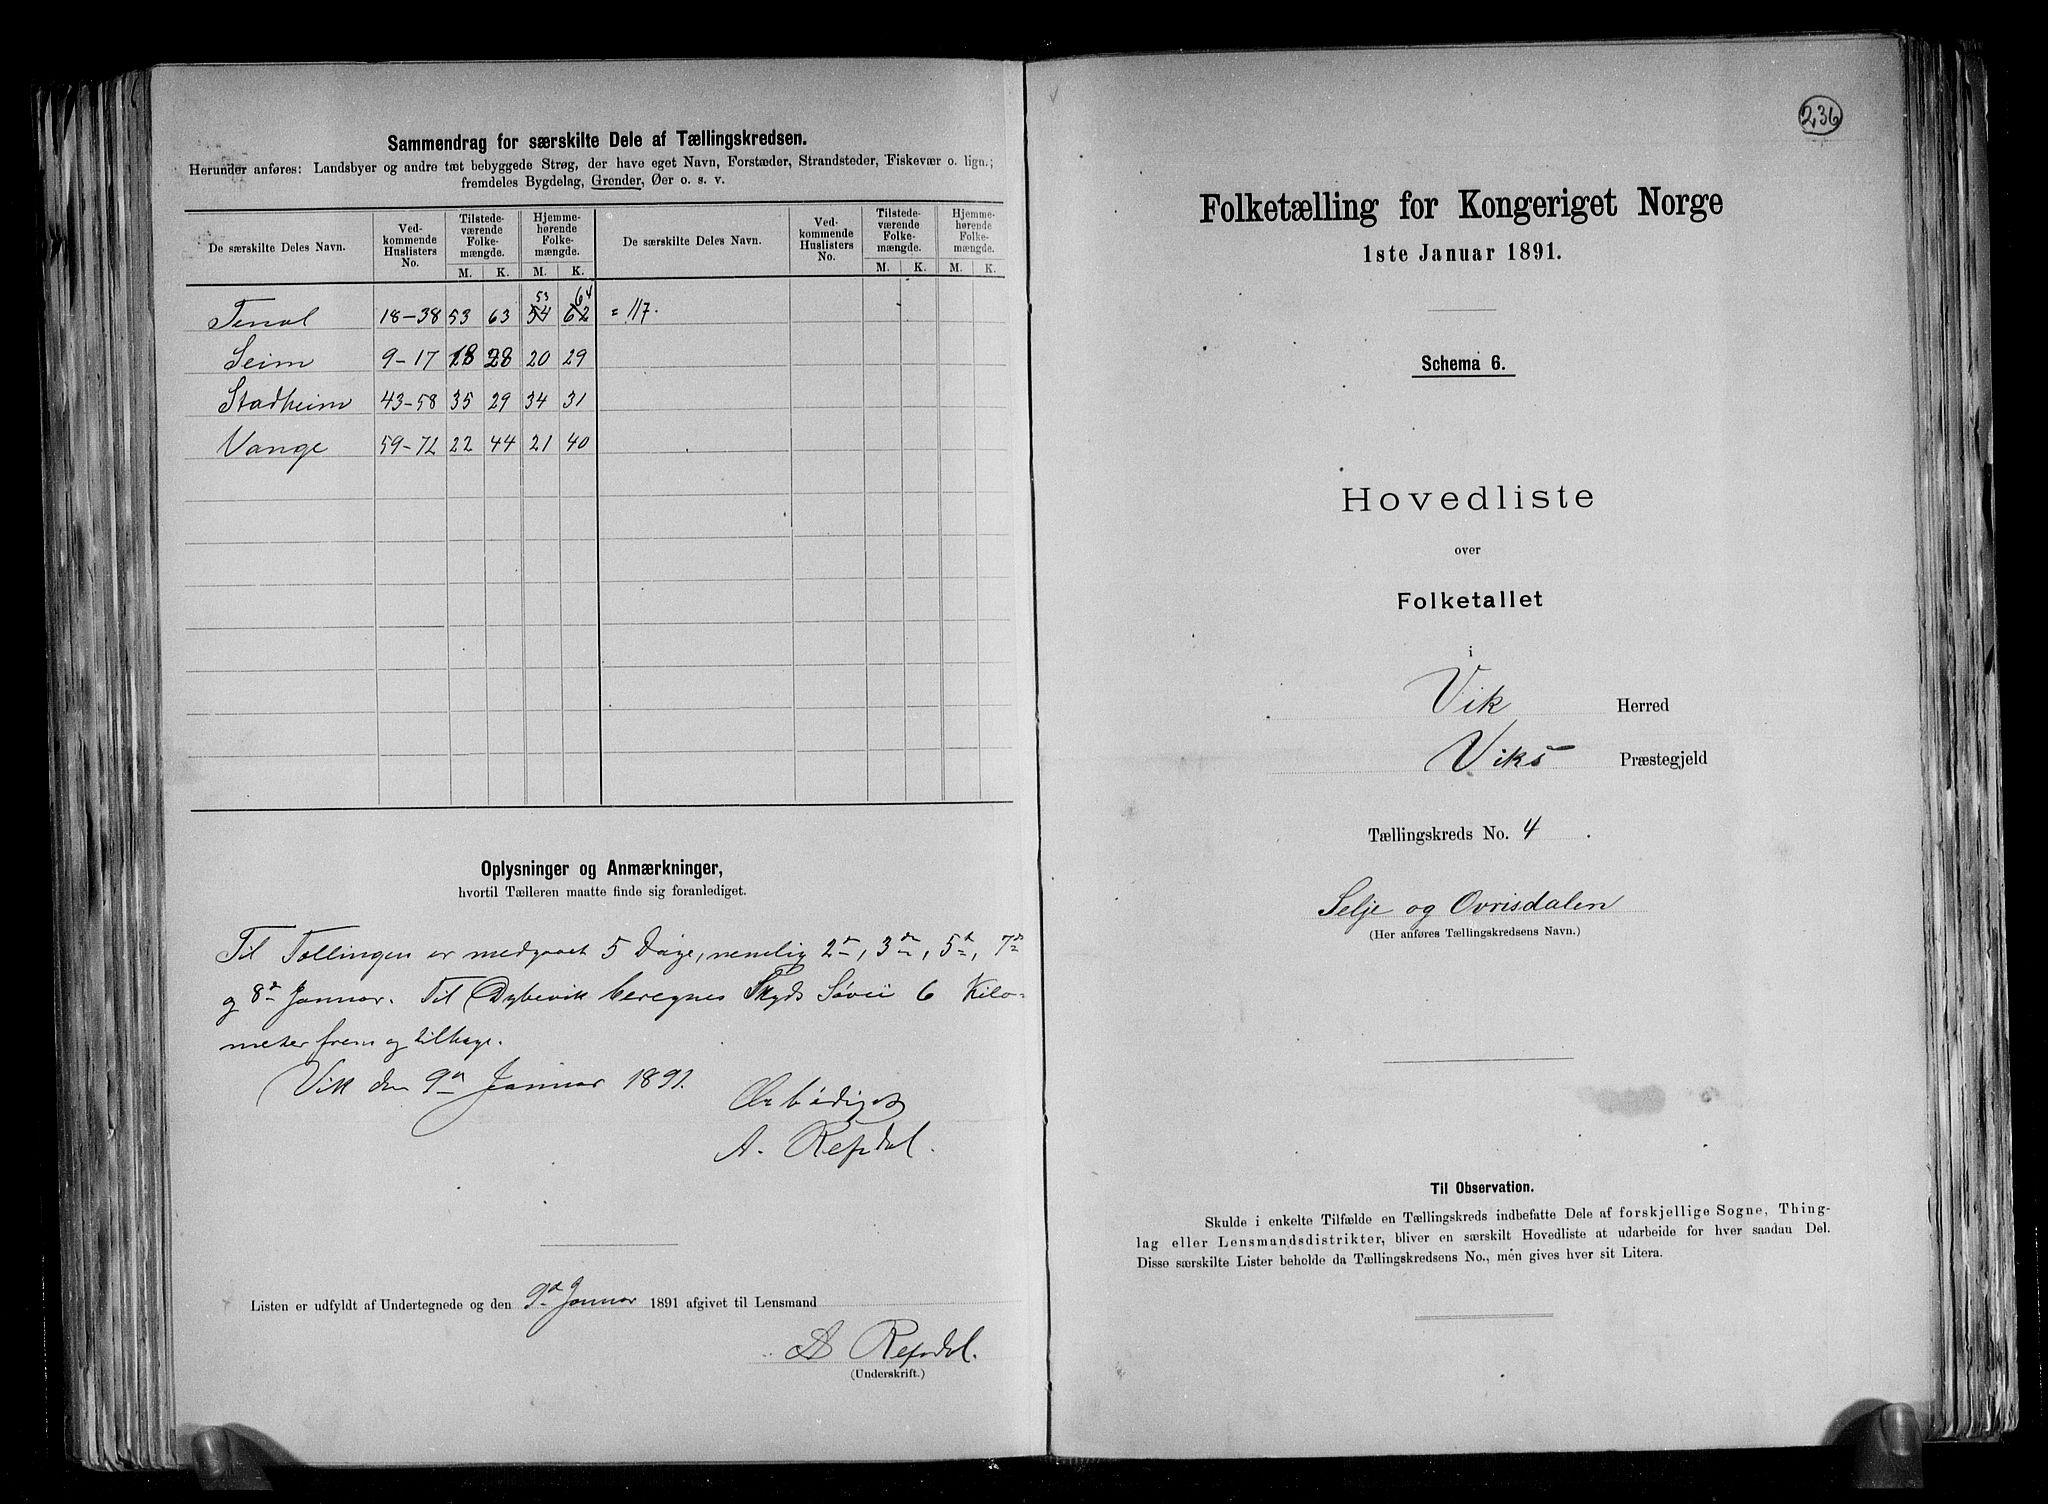 Sammendrag for særskilte Dele af Tællingskredsen.
Herunder anføres: Landsbyer og andre tæt bebyggede Strøg, der have eget Navn, Forstæder, Strandsteder, Fiskevær o. lign.;
fremdeles Bygdelag, Grender, Øer o. s. v.
De særskilte Deles Navn. Ved-kommende Huslisters No. Tilstede-værende Folke-mængde. M. K. Hjemme-hørende Folke-mængde. M. K. De særskilte Deles Navn. Ved-kommende Huslisters No. Tilstede-værende Folke-mængde. M. K. Hjemme-hørende Folke-mængde. M. K.
53 64
18-38 53 63 54 62 = 117.
Seim 9-17 18 28 20 29
Stadheim 43-58 35 29 34 31
Vange 59-72 22 44 21 40
Oplysninger og Anmærkninger,
hvortil Tælleren maatte finde sig foranlediget.
Til Tællingen er medgaaet 5 Dage, nemlig 2d, 3de, 5te, 7de
og 8de Januar. Til Dybevik beregnes Skyds Søvei 6 Kilo-
meter frem og tilbage.
Vik den 9de Januar 1891.
Ærbødigst
A. Refsdal.
Listen er udfyldt af Undertegnede og den 9de Januar 1891 afgivet til Lensmand
A Refsdal.
(Underskrift.)
236
Folketælling for Kongeriget Norge
1ste Januar 1891.
Schema 6.
Hovedliste
over
Folketallet
i
Vik Herred
Viks Præstegjeld
Tællingskreds No. 4.
Selje og Ovrisdalen
(Her anføres Tællingskredsens Navn.)
Til Observation.
Skulde i enkelte Tilfælde en Tællingskreds indbefatte Dele af forskjellige Sogne, Thing-
lag eller Lensmandsdistrikter, bliver en særskilt Hovedliste at udarbeide for hver saadan Del.
Disse særskilte Lister beholde da Tællingskredsens No., men gives hver sit Litera.